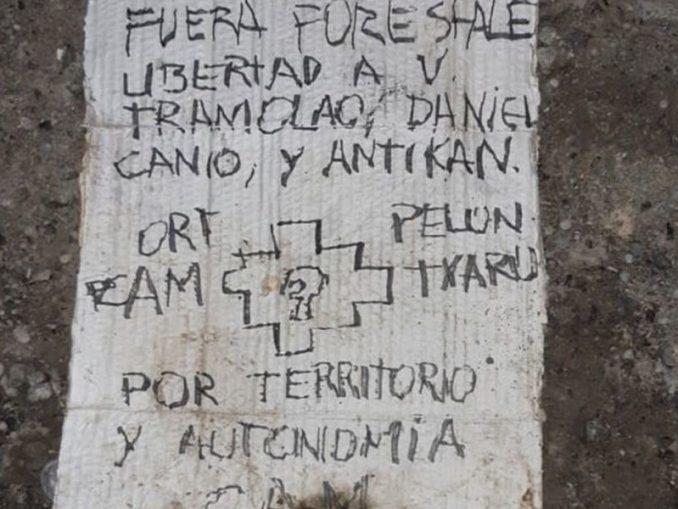 FUERA FORESTALE
LIBERTAD A V.
TRAMOLAO, DANIEL
CANIO, Y ANTIKAN.
ORT PELON
CAM TXARU
POR TERRITORIO
Y AUTONOMIA
CAM